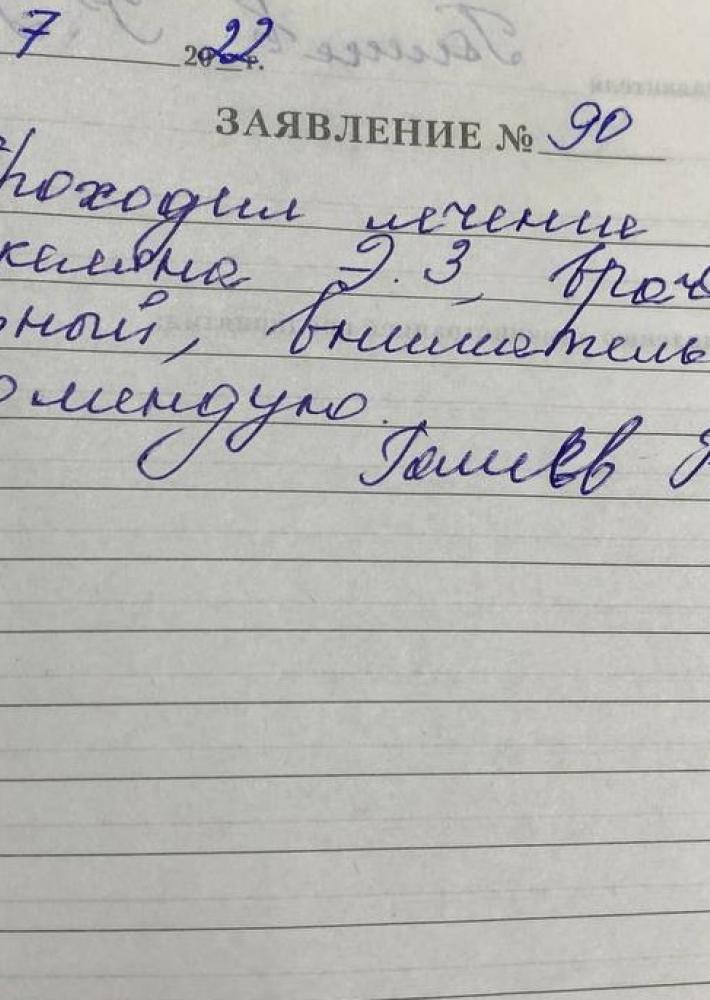 7 2022 г.
ЗАЯВЛЕНИЕ № 90
Проходил лечение
Э. З, врач
ный, вниматель
омендую.
Галиев